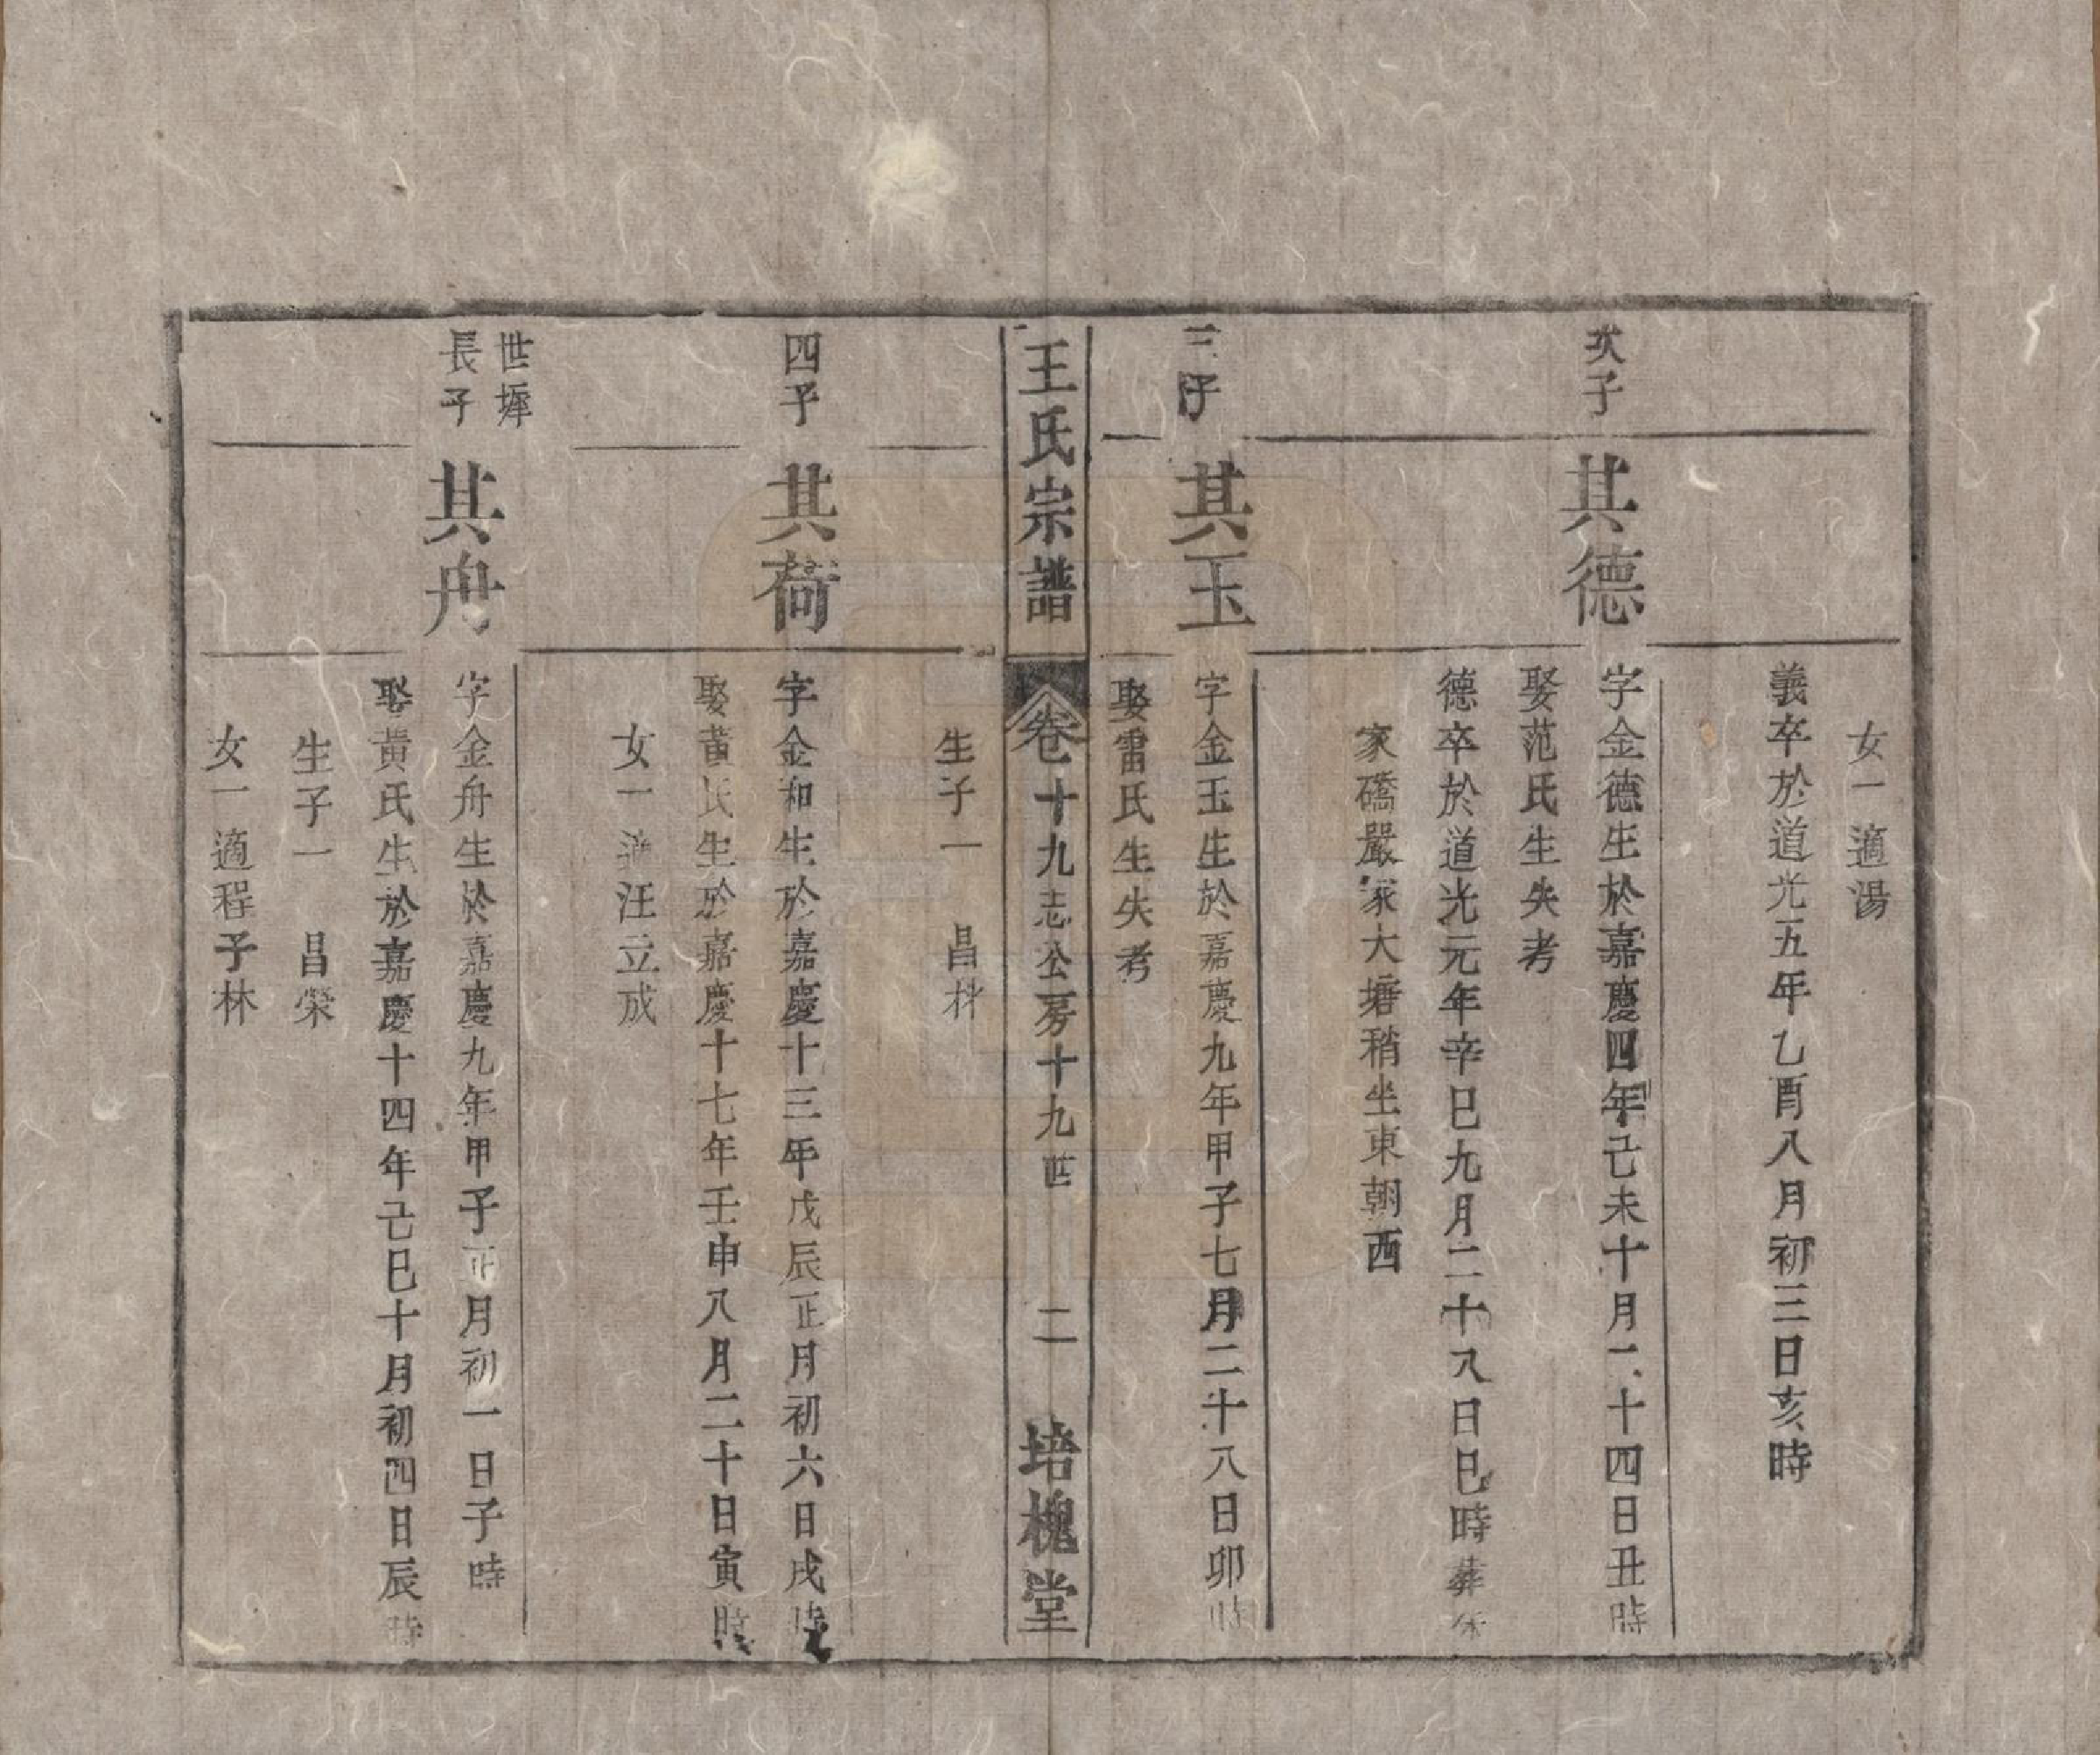 女一適湯
義卒於道光五年乙酉八月初三日亥時
次子
其德
字金德生於嘉慶四年己未十月二十四日丑時
娶范氏生失考
德卒於道光元年辛巳九月二十八日巳時葬余
家礄嚴家大塘稍坐東朝西
三子
其玉
字金玉生於嘉慶九年甲子七月二十八日卯時
娶雷氏生失考
王氏宗譜
卷十九志公房十九世
二
培槐堂
生子一 昌
四子
其荷
字金和生於嘉慶十三年戊辰正月初六日戌時
娶黃氏生於嘉慶十七年壬申八月二十日寅時
女一適汪立成
世墀
長子
其舟
字金舟生於嘉慶九年甲子正月初一日子時
娶黃氏生於嘉慶十四年己巳十月初四日辰時
生子一 昌榮
女一適程子林